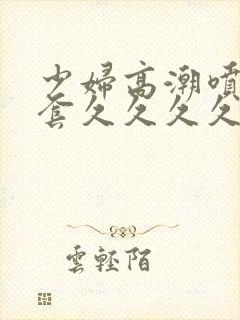 少婦高潮噴
套久久久久
雲輕陌